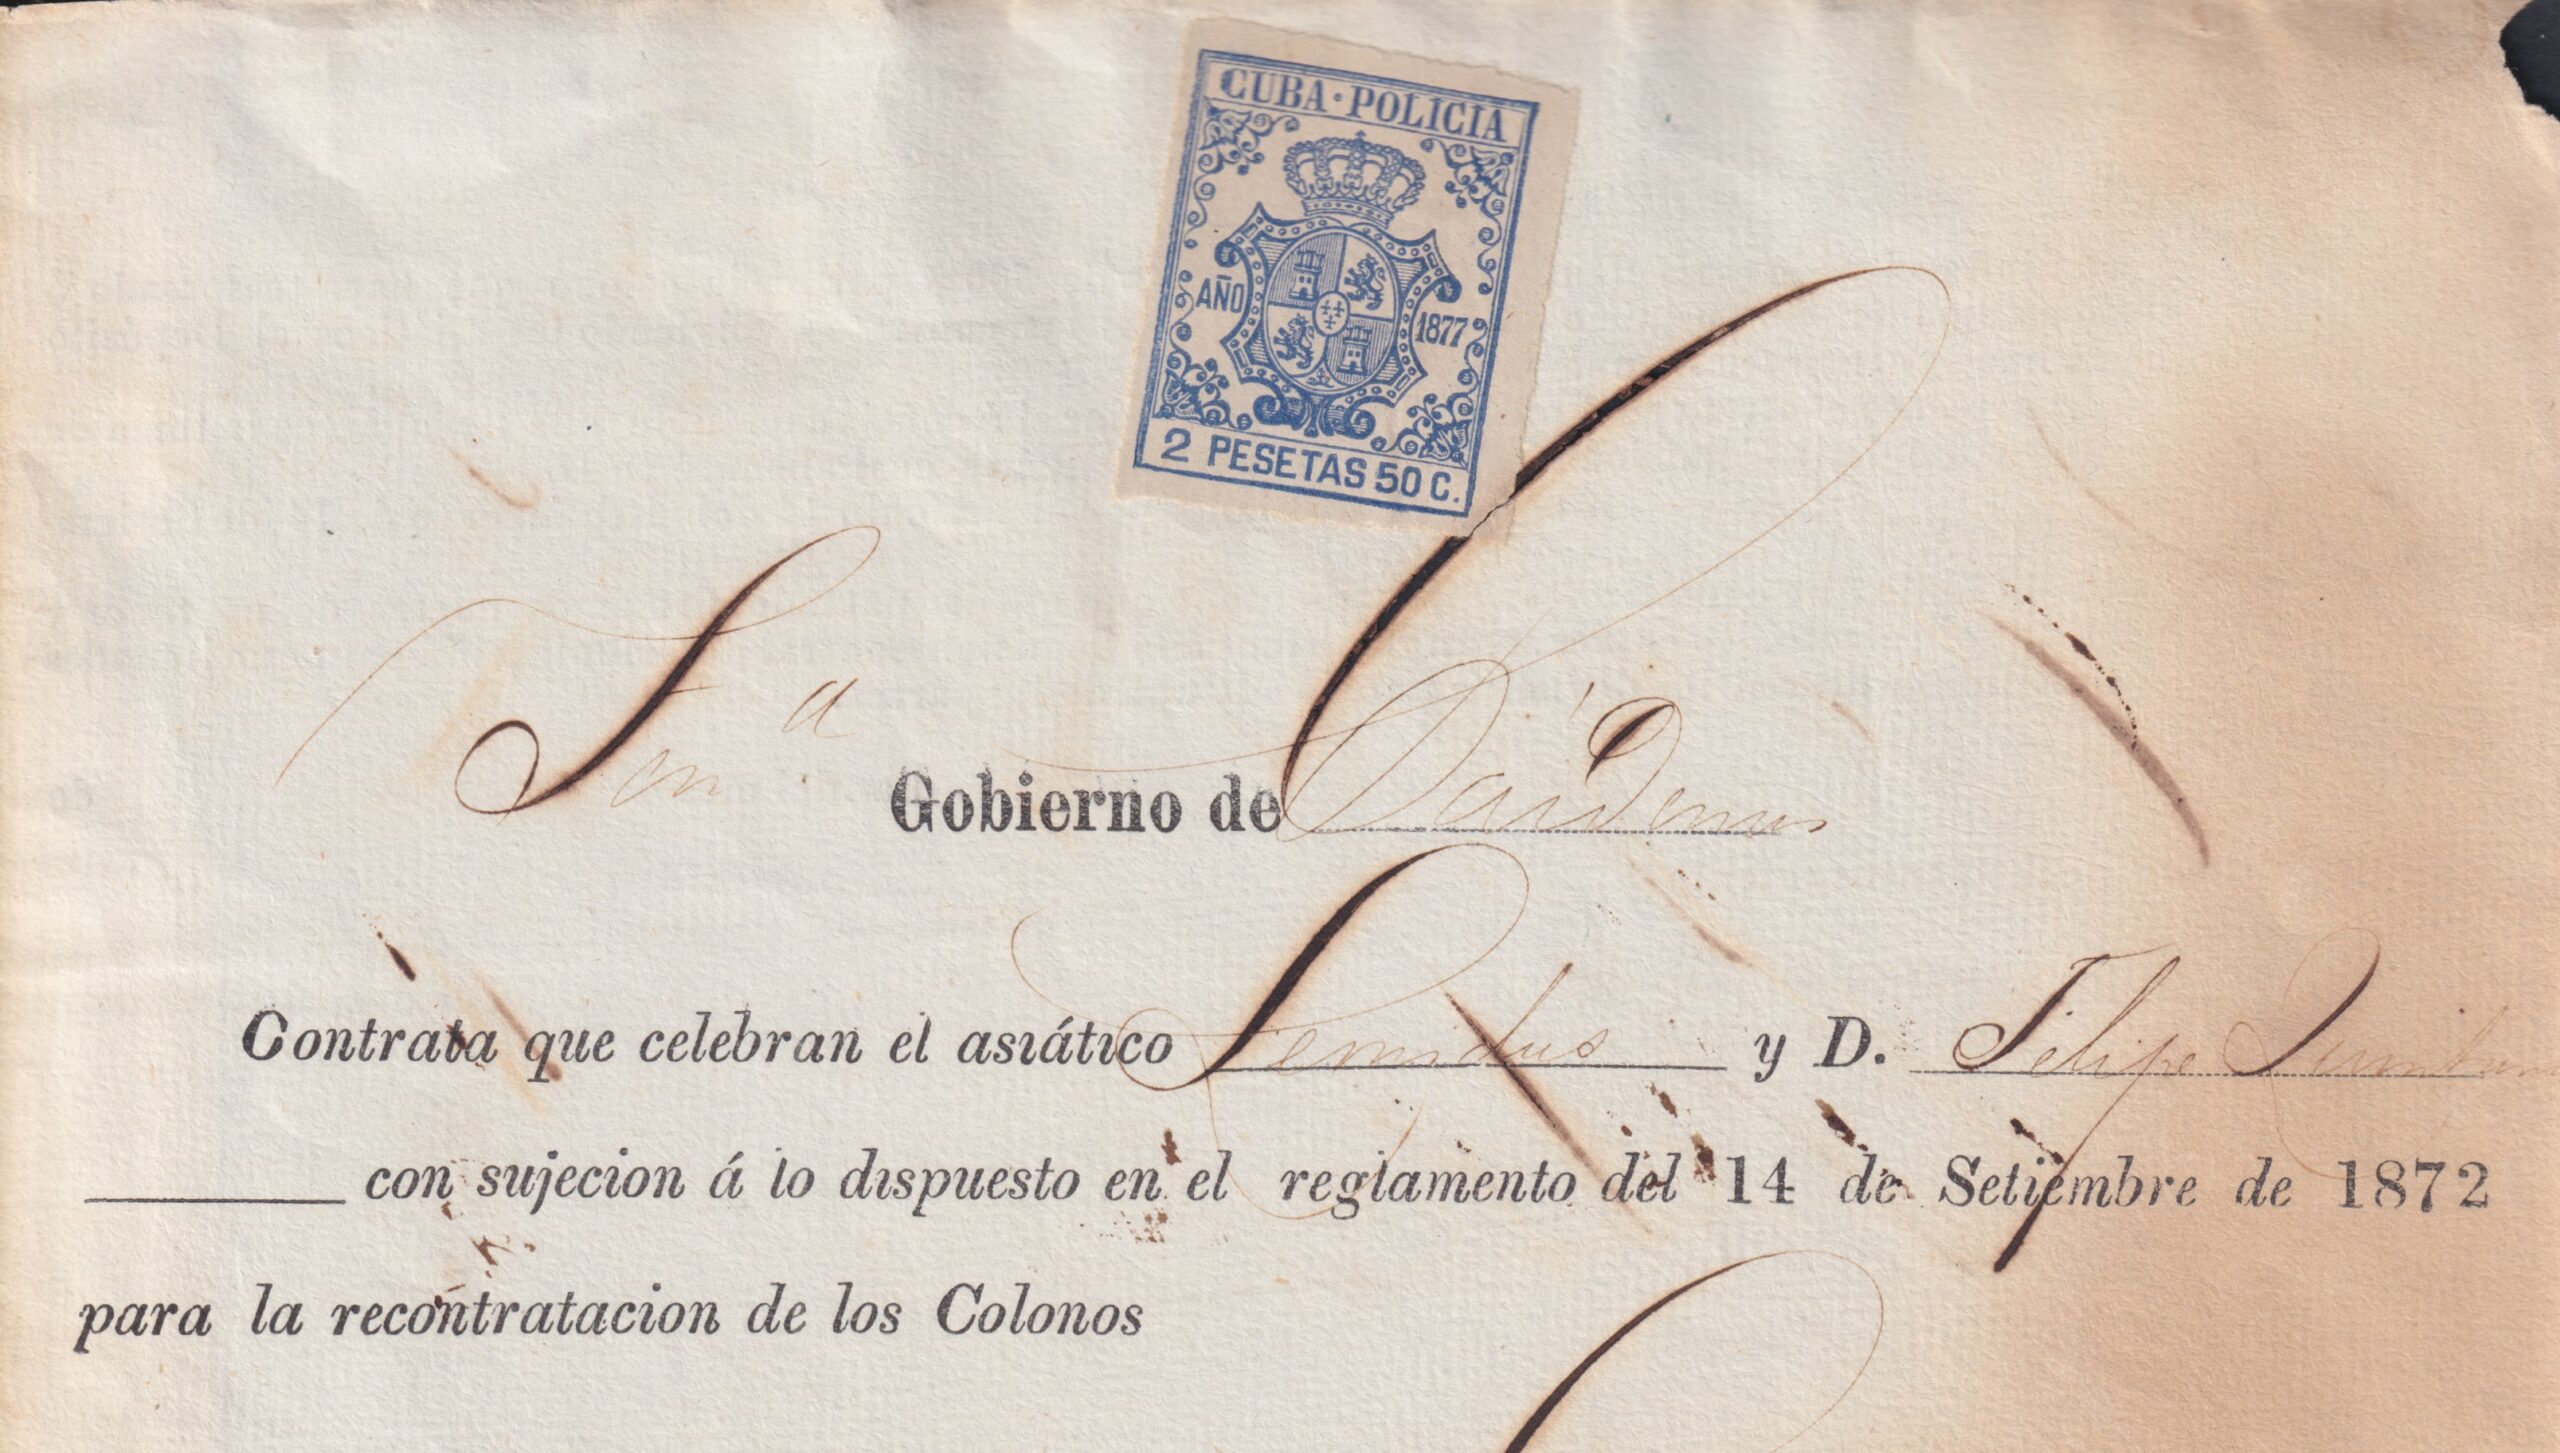 CUBA · POLICIA
AÑO 1877
2 PESETAS 50 C.
Ten a
Gobierno de Cárdenas
Contrata que celebran el asiático Leonidas y D. Felipe Quintana
con sujecion á lo dispuesto en el reglamento del 14 de Setiembre de 1872
para la recontratacion de los Colonos